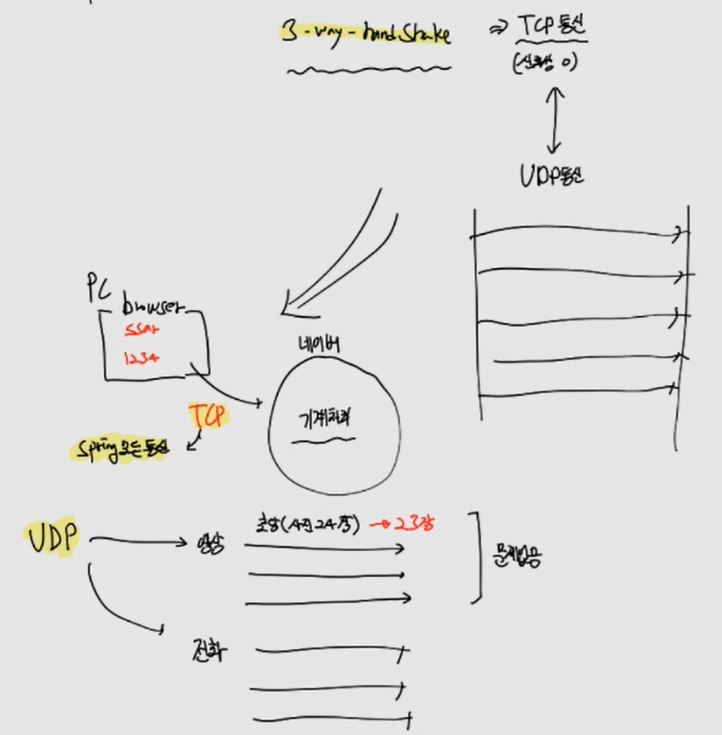 3-way-handshake ⇒ TCP통신
(신뢰성 O)
UDP통신
PC
browser
ssar
1234
네이버
TCP
Spring 모든 통신
UDP
영상
초당(사진24장) → 23장
문제없음
전화